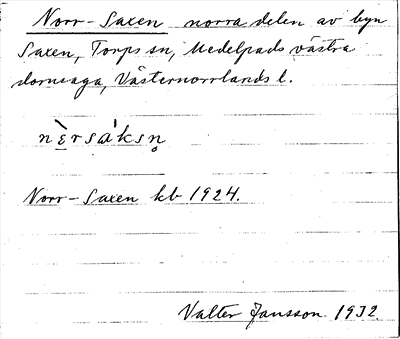 Norr-Saxen norra delen av byn
Saxen, Torps sn, Medelpads västra
domsaga, Västernorrlands l.
nɛ̀rsáksn̥
Norr-Saxen kb 1924.
Valter Jansson 1932